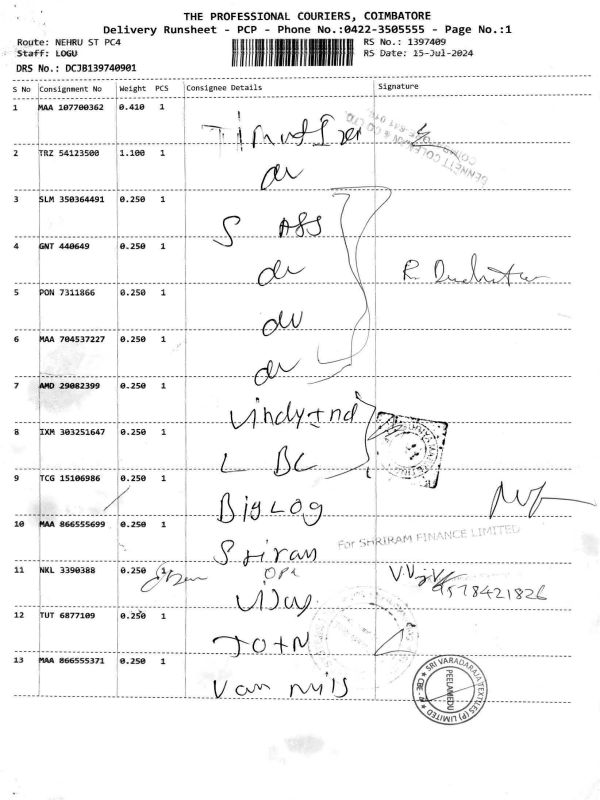 THE PROFESSIONAL COURIERS, COIMBATORE
Delivery Runsheet - PCP - Phone No.:0422-3505555 - Page No.:1
Route: NEHRU ST PC4 RS No.: 1397409
Staff: LOGU RS Date: 15-Jul-2024
DRS No.: DCJB139740901
S No Consignment No Weight PCS Consignee Details Signature
1 MAA 107700362 0.410 1
BENNETT COLEMAN & CO LTD.
2 TRZ 54123500 1.100 1
3 SLM 350364491 0.250 1
4 GNT 440649 0.250 1
5 PON 7311866 0.250 1
6 MAA 704537227 0.250 1
7 AMD 29082399 0.250 1
8 IXM 303251647 0.250 1 L BC
9 TCG 15106986 0.250 1 Big Log
10 MAA 866555699 0.250 1 Sriram
For SHRIRAM FINANCE LIMITED
11 NKL 3390388 0.250 1 Vijay
9578421826
12 TUT 6877109 0.250 1
13 MAA 866555371 0.250 1 Van mils
SRI VARADARAJA TEXTILES (P) LIMITED
PEELAMEDU